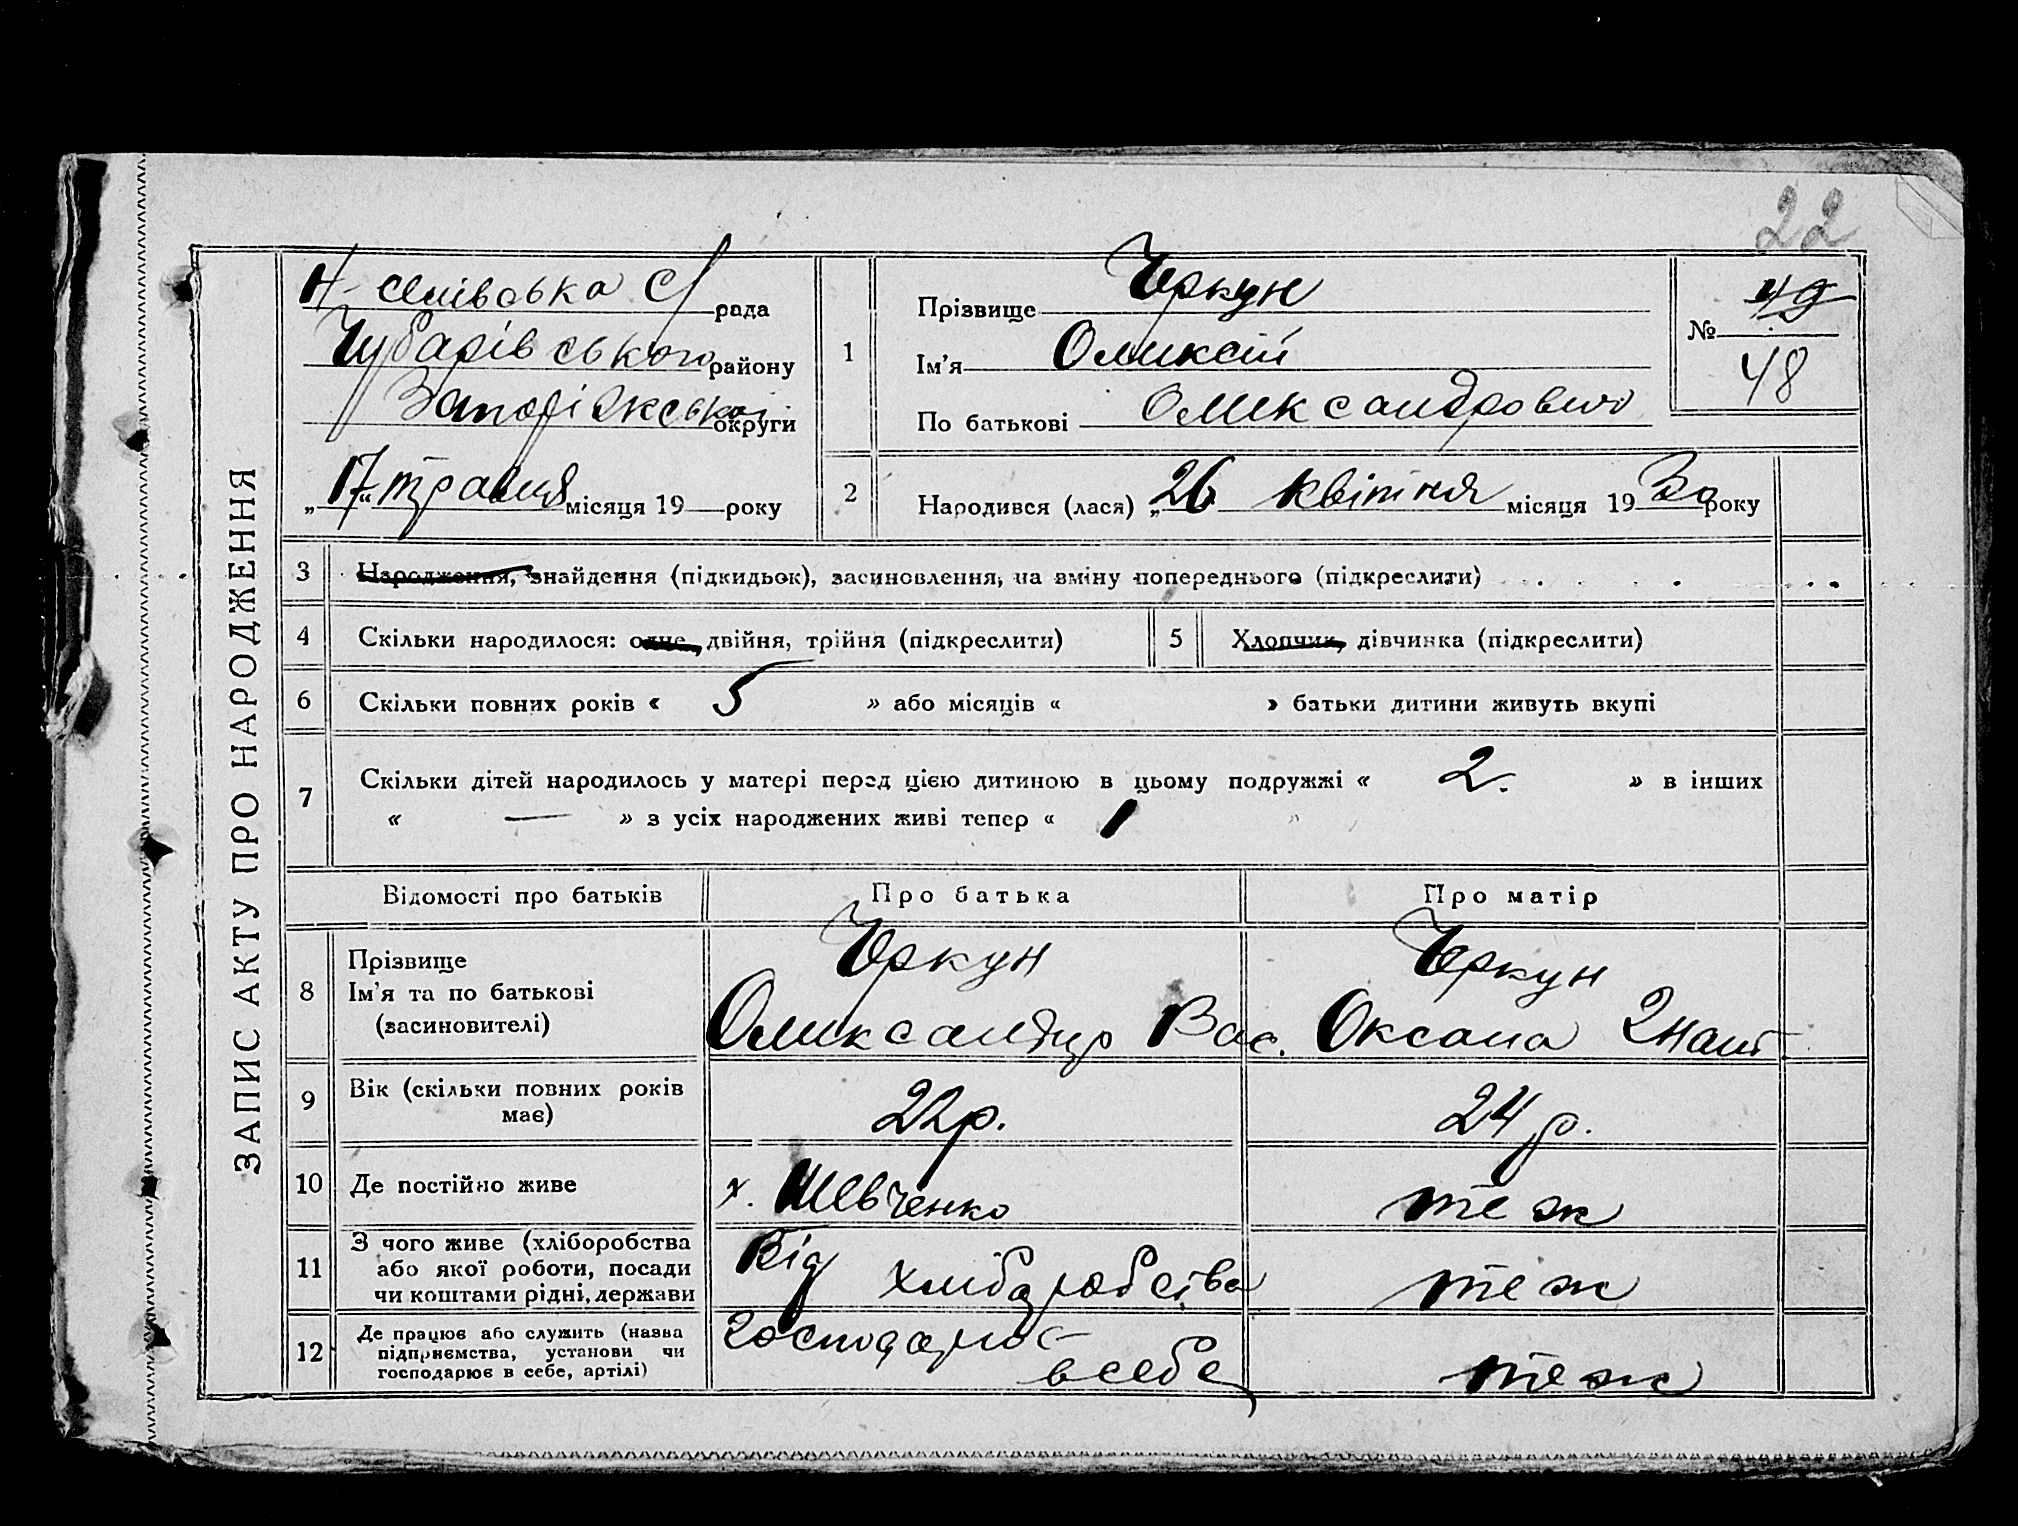 22
ЗАПИС АКТУ ПРО НАРОДЖЕННЯ
рада
Чубарівського району
Запоріжської округи
„17“ травня місяця 19 року
1
Прізвище Черкун
Ім'я Олексій
По батькові Олександрович
№ 49
48
2
Народився (лася) „26 квітня місяця 1930 року
3
Народження, знайдення (підкидьок), засиновлення, на зміну попереднього (підкреслити)
4
Скільки народилося: одне, двійня, трійня (підкреслити)
5
Хлопчик, дівчинка (підкреслити)
6
Скільки повних років « 5 » або місяців « » батьки дитини живуть вкупі
7
Скільки дітей народилось у матері перед цією дитиною в цьому подружжі « 2. » в інших
« — » з усіх народжених живі тепер « 1 »
Відомості про батьків
Про батька
Про матір
8
Прізвище
Ім'я та по батькові
(засиновителі)
Черкун
Олександр Вас.
Черкун
Оксана Гнат.
9
Вік (скільки повних років
має)
22р.
24 р.
10
Де постійно живе
х. Шевченко
теж
11
З чого живе (хліборобства
або якої роботи, посади
чи коштами рідні, держави
Від хліборобства
теж
12
Де працює або служить (назва
підприємства, установи чи
господарює в себе, артілі)
господарює
в себе
теж